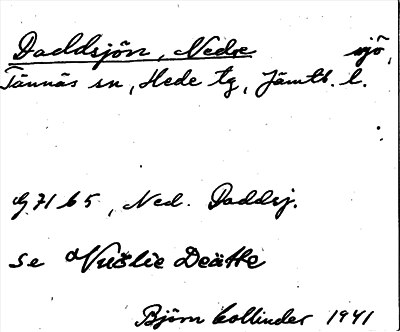 Daddsjön, Nedre sjö,
Tännäs sn, Hede tg, Jämtl. l.
G. 71 b 5, Ned. Daddsj.
se Vuślie Deätte
Björn Collinder 1941